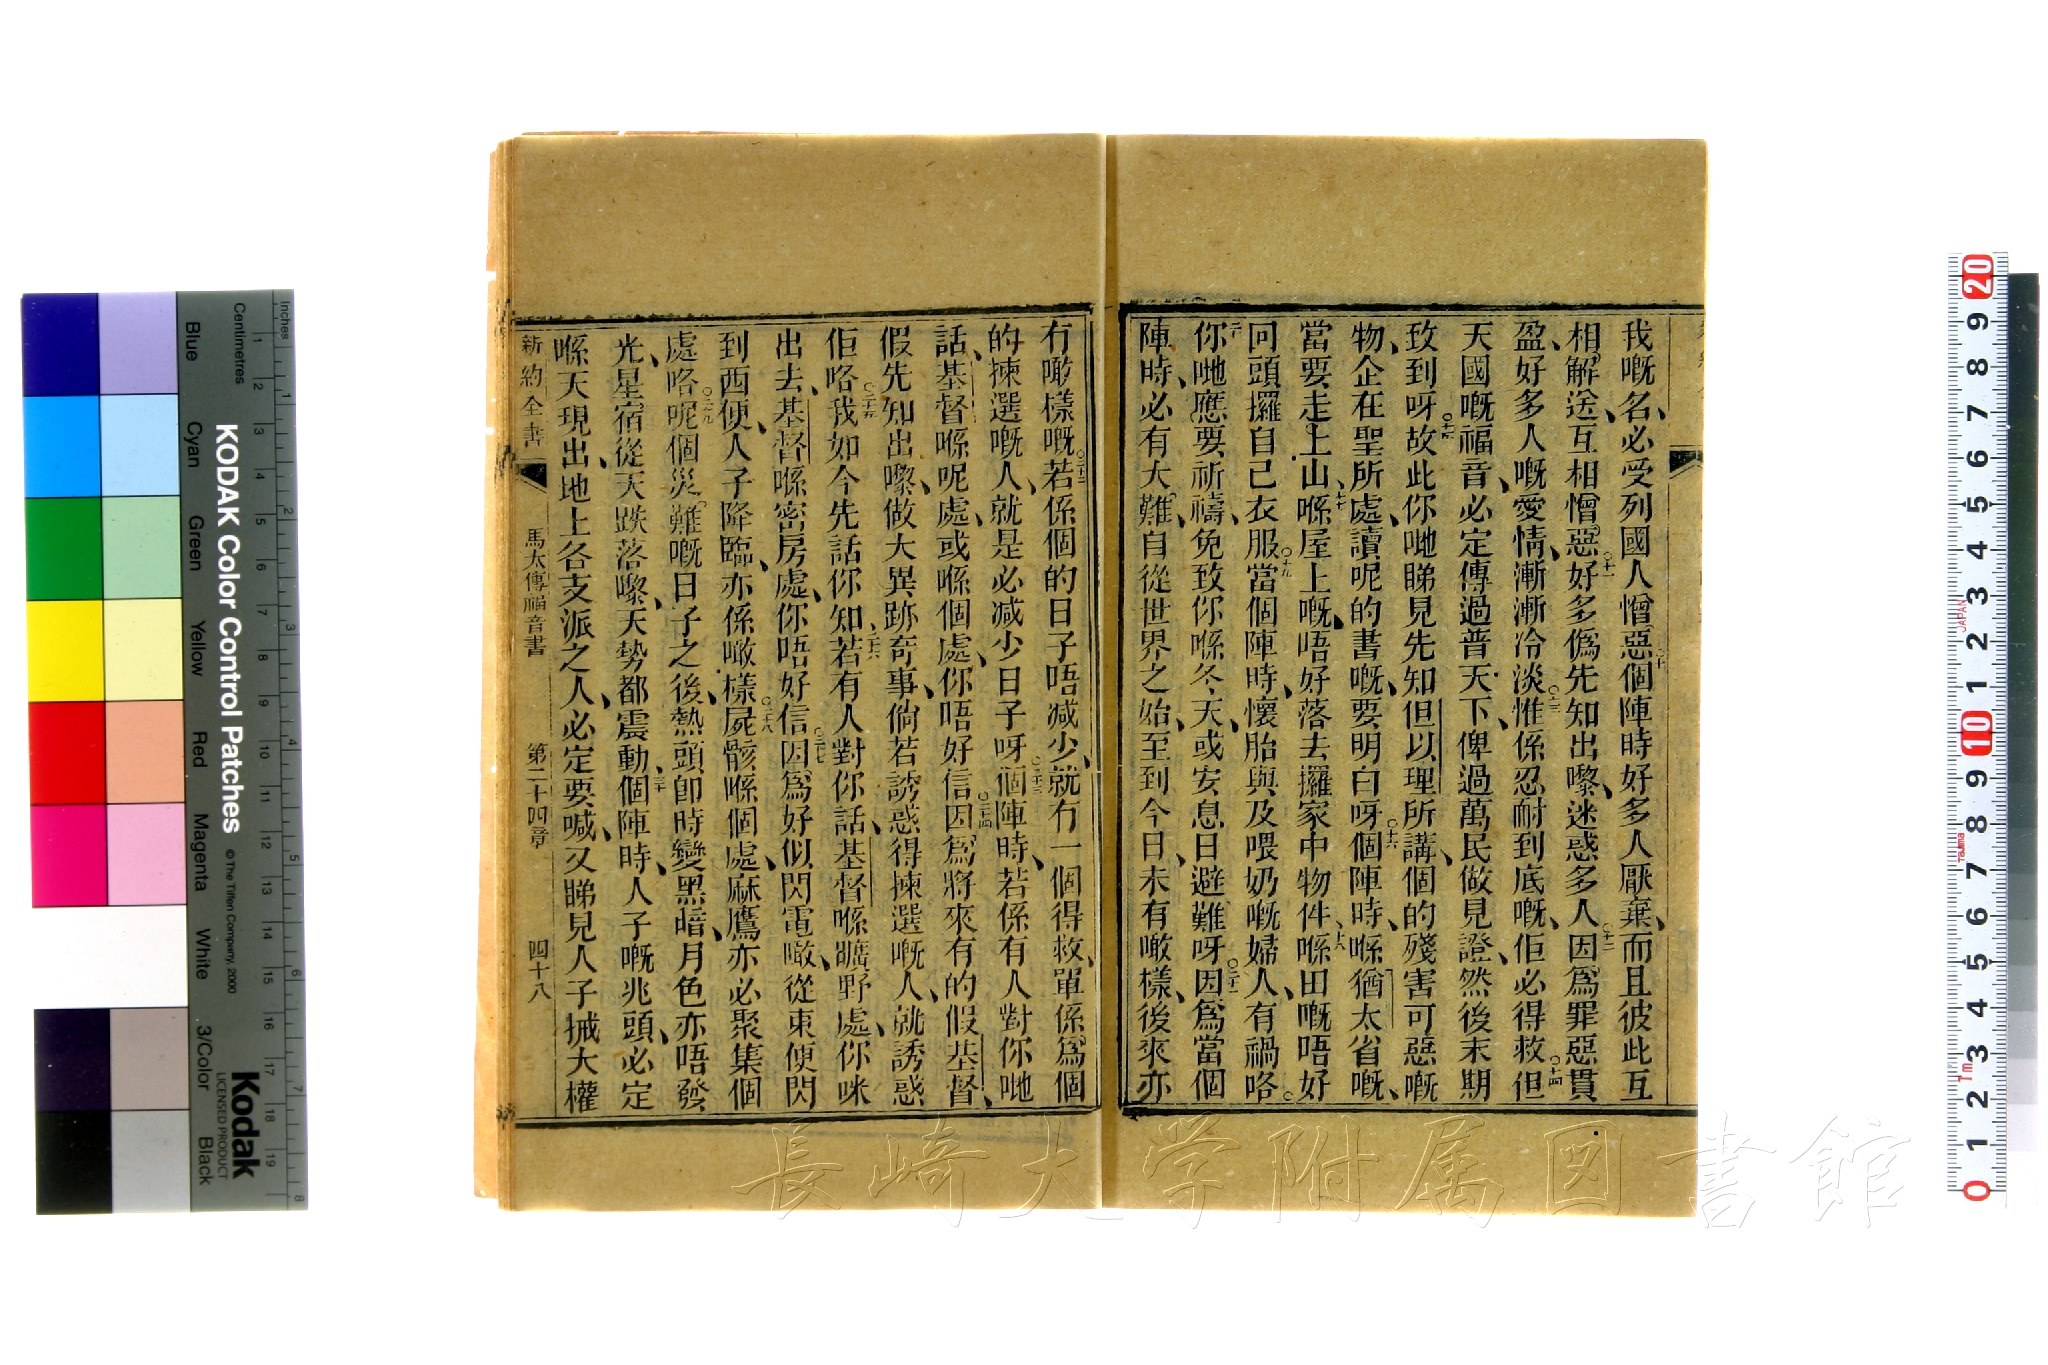 我嘅名、必受列國人憎惡、個陣時好多人厭棄、而且彼此互
相解送、互相憎惡、好多僞先知出嚟、迷惑多人、因爲罪惡貫
盈、好多人嘅愛情、漸漸冷淡、惟係忍耐到底嘅、佢必得救、但
天國嘅福音、必定傳過普天下、俾過萬民做見證、然後末期
致到呀、故此你哋睇見先知但以理所講、個的殘害可惡嘅
物、企在聖所處、讀呢的書嘅、要明白呀、個陣時、喺猶太省嘅、
當要走上山、喺屋上嘅、唔好落去攞家中物件、喺田嘅唔好
回頭攞自己衣服、當個陣時、懷胎與及喂奶嘅婦人、有禍咯。
你哋應要祈禱、免致你喺冬天、或安息日避難呀、因爲當個
陣時、必有大難、自從世界之始、至到今日、未有噉樣、後來亦
冇噉樣嘅、若係個的日子唔减少、就冇一個得救、單係爲個
的揀選嘅人、就是必减少日子呀、個陣時、若係有人對你哋
話、基督喺呢處、或喺個處、你唔好信、因爲將來有的假基督、
假先知出嚟、做大異跡奇事、倘若誘惑得揀選嘅人、就誘惑
佢咯、我如今先話你知、若有人對你話、基督喺曠野處、你咪
出去、基督喺密房處、你唔好信、因爲好似閃電噉、從東便閃
到西便、人子降臨、亦係噉樣、屍骸喺個處、麻鷹亦必聚集個
處咯、呢個災難嘅日子之後、熱頭卽時變黑暗、月色亦唔發
光、星宿從天跌落嚟、天勢都震動、個陣時、人子嘅兆頭、必定
喺天現出、地上各支派之人、必定要喊、又睇見人子搣大權
新約全書 馬太傳福音書 第二十四章 四十八
Inches
Centimetres
Blue Cyan Green Yellow Red Magenta White 3/Color Black
KODAK Color Control Patches
© The Tiffen Company, 2000
Kodak
LICENSED PRODUCT
長崎大学附属図書館